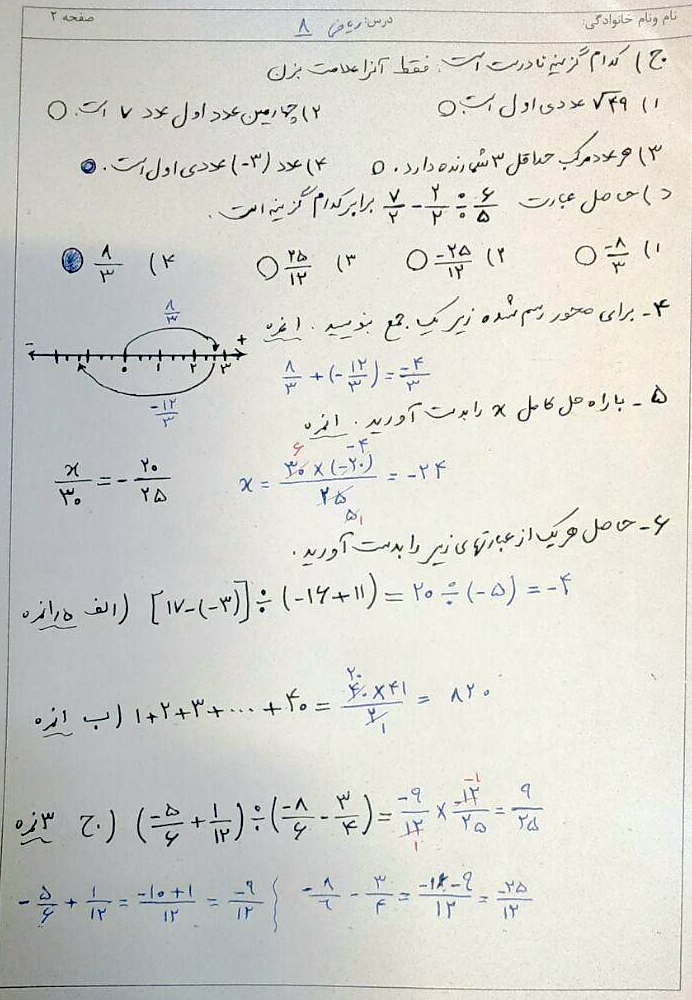 نام ونام خانوادگی: درس: ریاضی ۸ صفحه ۲
ج) کدام گزینه نادرست است. فقط آنرا علامت بزن
۱) √۴۹ عددی اول است. ۲) چهارمین عدد اول عدد ۷ است.
۳) هر عدد مرکب حداقل ۳ شمارنده دارد. ۴) عدد (-۳) عددی اول است.
د) حاصل عبارت ۷/۲ - ۲/۲ ÷ ۶/۵ برابر کدام گزینه است.
۱) -۸/۳ ۲) -۲۵/۱۲ ۳) ۲۵/۱۲ ۴) ۸/۳
۴- برای محور رسم شده زیر یک جمع بنویسید. ۱نمره
۸/۳
- ۰ ۱ ۲ ۳ +
-۱۲/۳
۸/۳ + (-۱۲/۳) = -۴/۳
۵- با راه حل کامل x را بدست آورید. ۱نمره
x/۳۰ = - ۲۰/۲۵ x = ۳۰ × (-۲۰) / ۲۵ = -۲۴
۶ -۴ ۵ ۱
۶- حاصل هر یک از عبارتهای زیر را بدست آورید.
الف) [۱۷-(-۳)] ÷ (-۱۶+۱۱) = ۲۰ ÷ (-۵) = -۴
ب) ۱نمره ۱+۲+۳+...+۴۰ = ۴۰ × ۴۱ / ۲ = ۸۲۰
۲۰ ۱
ج) ۳نمره (-۵/۶ + ۱/۱۲) ÷ (-۸/۶ - ۳/۴) = -۹/۱۲ × -۱۲/۲۵ = ۹/۲۵
-۱ ۱
-۵/۶ + ۱/۱۲ = -۱۰+۱/۱۲ = -۹/۱۲ { -۸/۶ - ۳/۴ = -۱۶-۹/۱۲ = -۲۵/۱۲